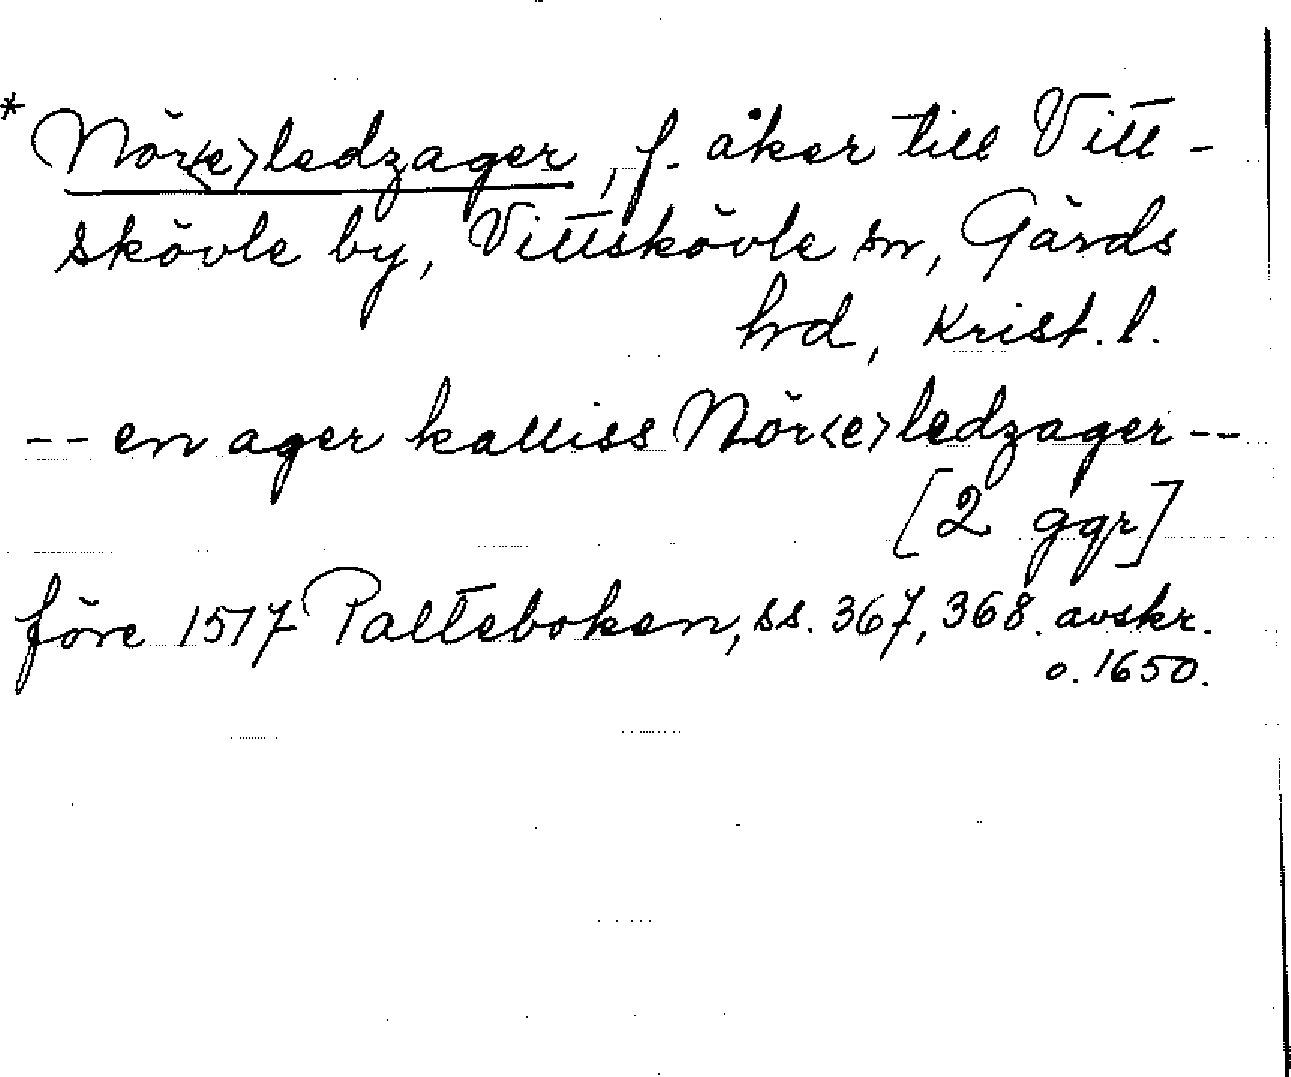 * Nör<e>ledzager, f. åker till Vitt-
skövle by, Vittskövle sn, Gärds
hd, Krist. l.
-- en ager kalliss Nör<e>ledzager --
[2 ggr]
före 1517 Palteboken, ss. 367, 368. avskr.
o. 1650.